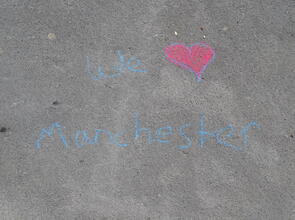 We ❤
Manchester